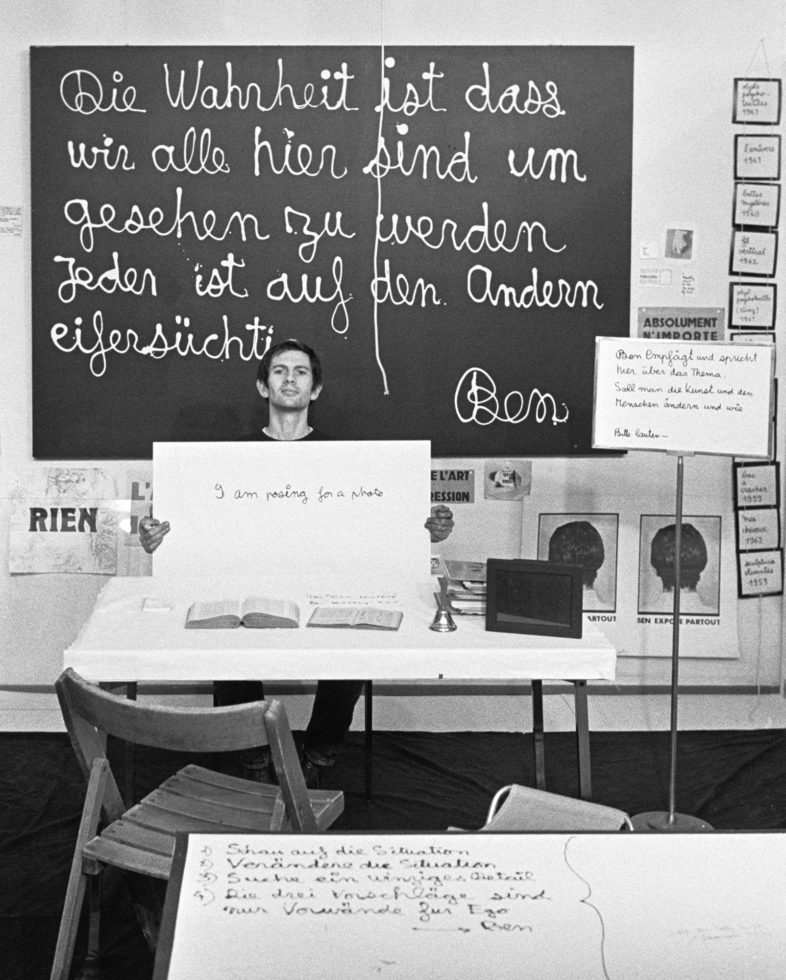 Die Wahrheit ist dass
wir alle hier sind um
gesehen zu werden
Jeder ist auf den Andern
eifersüchti
Ben
I am posing for a photo
RIEN
L'A
E L'ART
RESSION
ABSOLUMENT
N'IMPORTE
Ben Empfägt und spricht
hier über das Thema:
Soll man die Kunst und den
Menschen ändern und wie
Bitte läuten—
ARTOUT
BEN EXPOSE PARTOUT
1961
l'univers
1961
boites
mystères
1960
vertical
1962
objet
1961
sac
à
cracher
1959
Mes
cheveux
1962
sculptures
vivantes
1959
1) Schau auf die Situation
2) Verändere die Situation
3) Suche ein winziges Detail
4) Die drei Vorschläge sind
nur Vorwände für Ego
→ Ben